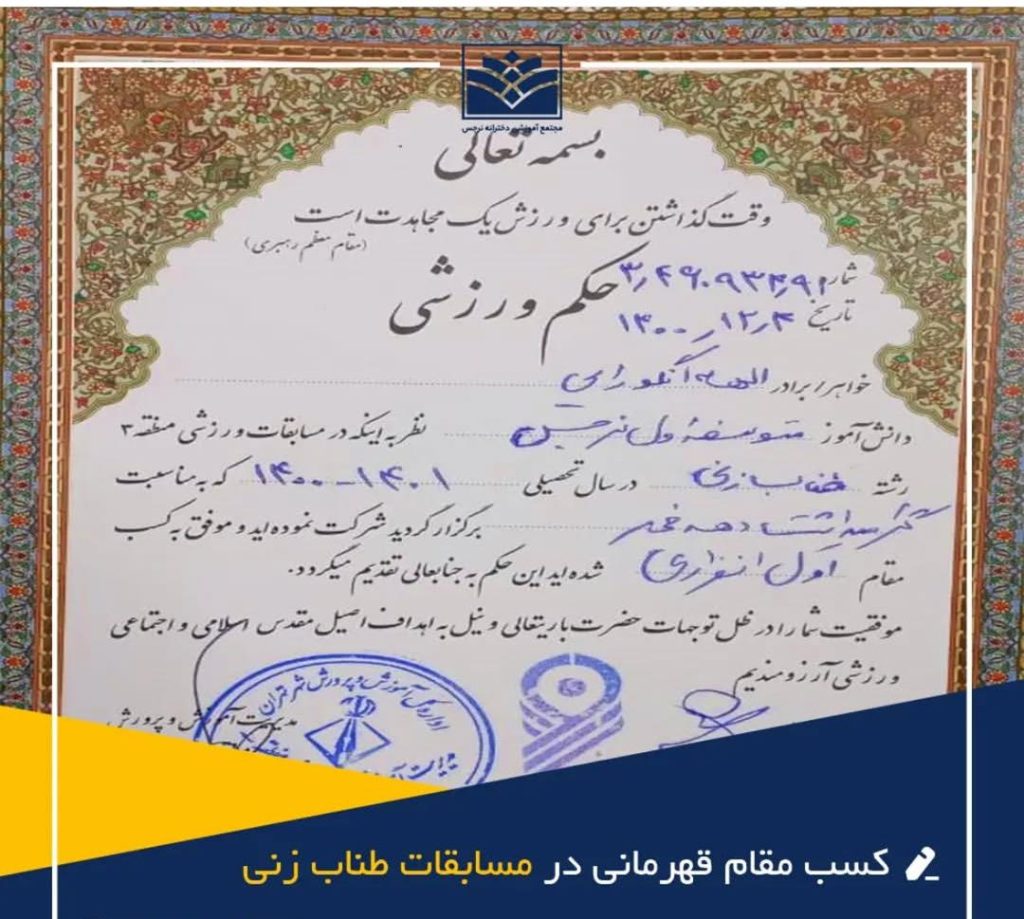 مجتمع آموزشی دخترانه نرجس
بسمه تعالی
وقت گذاشتن برای ورزش یک مجاهدت است
(مقام معظم رهبری)
حکم ورزشی
شماره
تاریخ ۱۴۰۰/۱۲/۴
خواهر/برادر الهه
دانش آموز متوسطه اول نرجس نظر به اینکه در مسابقات ورزشی منطقه ۳
رشته طناب زنی در سال تحصیلی ۱۴۰۰-۱۴۰۱ که به مناسبت
گرامیداشت دهه فجر برگزار گردید شرکت نموده اید و موفق به کسب
مقام اول انفرادی شده اید این حکم به جنابعالی تقدیم میگردد.
موفقیت شما را در ظل توجهات حضرت باریتعالی و نیل به اهداف اصیل مقدس اسلامی و اجتماعی
ورزشی آرزومندیم
مدیریت آموزش و پرورش
اداره کل آموزش و پرورش شهر تهران
کسب مقام قهرمانی در مسابقات طناب زنی